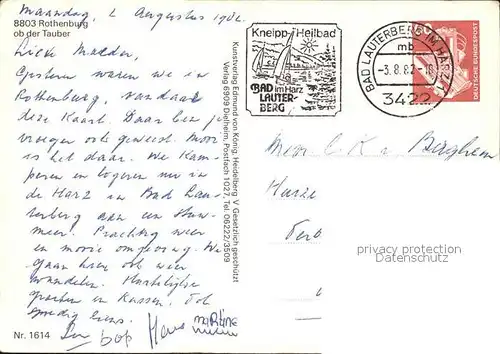 Maandag, 2 Augustus 1982.
8803 Rothenburg
ob der Tauber
Lieve Moeder,
Gisteren waren we in
Rothenburg, vandaar
deze Kaart. Daar ben je
vroeger ook geweest. Mooi
is het daar. We Kam-
peren en logeren nu in
de Harz in Bad Lau-
terberg aan een stuw-
meer. Prachtig weer
en mooie omgeving. We
gaan hier ook wat
wandelen. Hartelijke
groeten en Kussen. Tot
spoedig eens.
Hans
Nr. 1614
Kunstverlag Edmund von König, Heidelberg V. Gesetzlich geschützt
Verlag 6909 Dielheim, Postfach 1027, Tel. 06222/3509
Kneipp-Heilbad
BAD im Harz
LAUTER-
BERG
BAD LAUTERBERG IM HARZ 1
mb
-3.8.82-18
3422
DEUTSCHE BUNDESPOST
Berghem
privacy protection
by Akpool.de